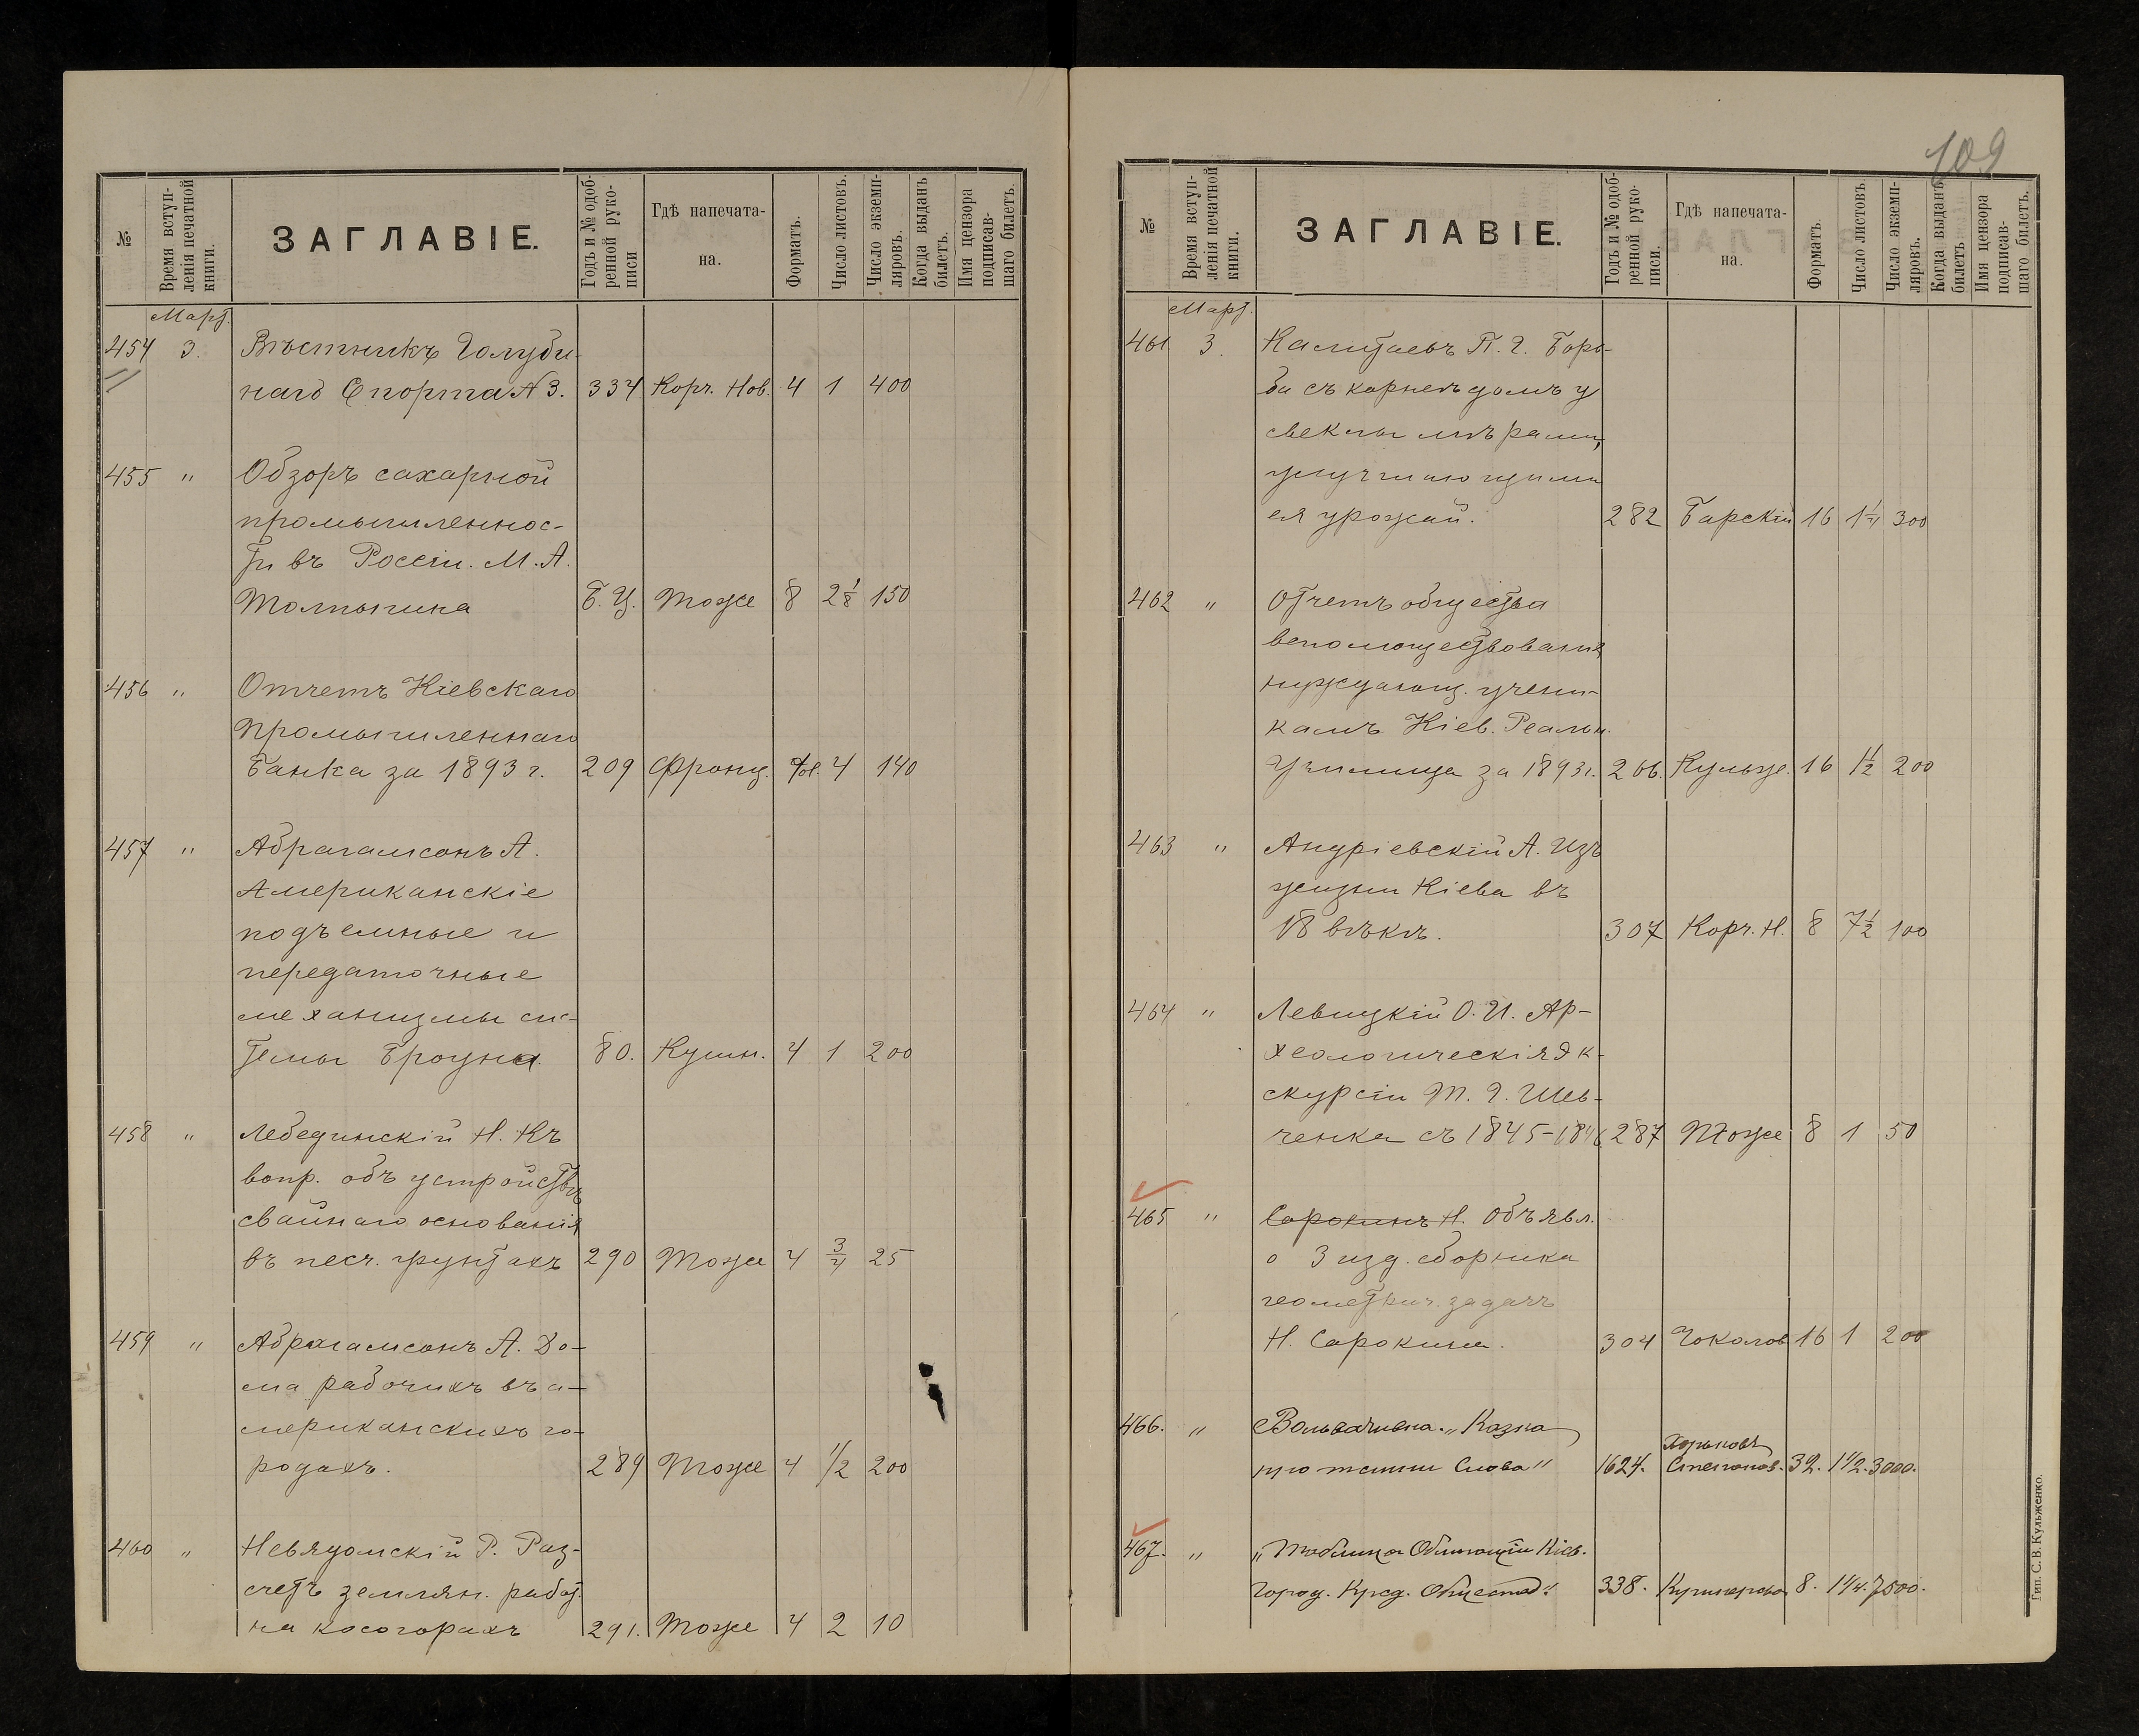 №
Время вступ-
ленія печатной
книги.
ЗАГЛАВІЕ.
Годъ и № одоб-
ренной руко-
писи
Гдѣ напечата-
на.
Форматъ.
Число листовъ.
Число экземп-
ляровъ.
Когда выданъ
билетъ.
Имя цензора
подписав-
шаго билетъ.
Март.
454 3. Вѣстникъ Голуби-
наго Спорта № 3. 334 Корч. Нов. 4 1 400
455 " Обзоръ сахарной
промышленнос-
ти въ Россіи. М. А.
Толпыгина Б. Ц. Тоже 8 2 1/8 150
456 " Отчетъ Кіевскаго
Промышленнаго
Банка за 1893 г. 209 Фронц. fol. 4 140
457 " Абрагамсонъ А.
Американскіе
подъемные и
передаточные
механизмы сис-
темы Броуна. 80. Кушн. 4 1 200
458 " Лебединскій Н. Къ
вопр. объ устройствѣ
свайнаго основанія
въ песч. грунтахъ 290 Тоже 4 3/4 25
459 " Абрагамсонъ А. До-
ма рабочихъ въ а-
мериканскихъ го-
родахъ. 289 Тоже 4 1/2 200
460 " Невядомскій Р. Раз-
счетъ землян. работ.
на косогорахъ 291. Тоже 4 2 10
109
№
Время вступ-
ленія печатной
книги.
ЗАГЛАВІЕ.
Годъ и № одоб-
ренной руко-
писи.
Гдѣ напечата-
на.
Форматъ.
Число листовъ.
Число экземп-
ляровъ.
Когда выданъ
билетъ
Имя цензора
подписав-
шаго билетъ.
Март.
461 3. П. Г. Борь-
ба съ корнеѣдомъ у
свеклы мѣрами,
улучшающими
ея урожай. 282 Барскій 16 1 1/4 300
462 " Отчетъ общества
вспомоществованія
нуждающ. учени-
камъ Кіев. Реальн.
Училища за 1893 г. 266. Кульж. 16 1 1/2 200
463 " Андріевскій А. Изъ
жизни Кіева въ
18 вѣкѣ. 307 Корч. Н. 8 7 1/2 100
464 " Левицкій О. И. Ар-
хеологическія эк-
скурсіи Т. Г. Шев-
ченка съ 1845-1846 287 Тоже 8 1 50
465 " Сорокинъ Н. Объявл.
о 3 изд. сборника
геометрич. задачъ
Н. Сорокина. 304 Чоколов 16 1 200
466. " "Казка
про Слова" 1624. Харьковъ Степанов. 32. 1 1/2. 3000.
467. " "Таблица Облигацій Кіев.
Город. Кред. Общества". 338. 8. 1 1/4. 7500.
Тип. С. В. Кульженко.